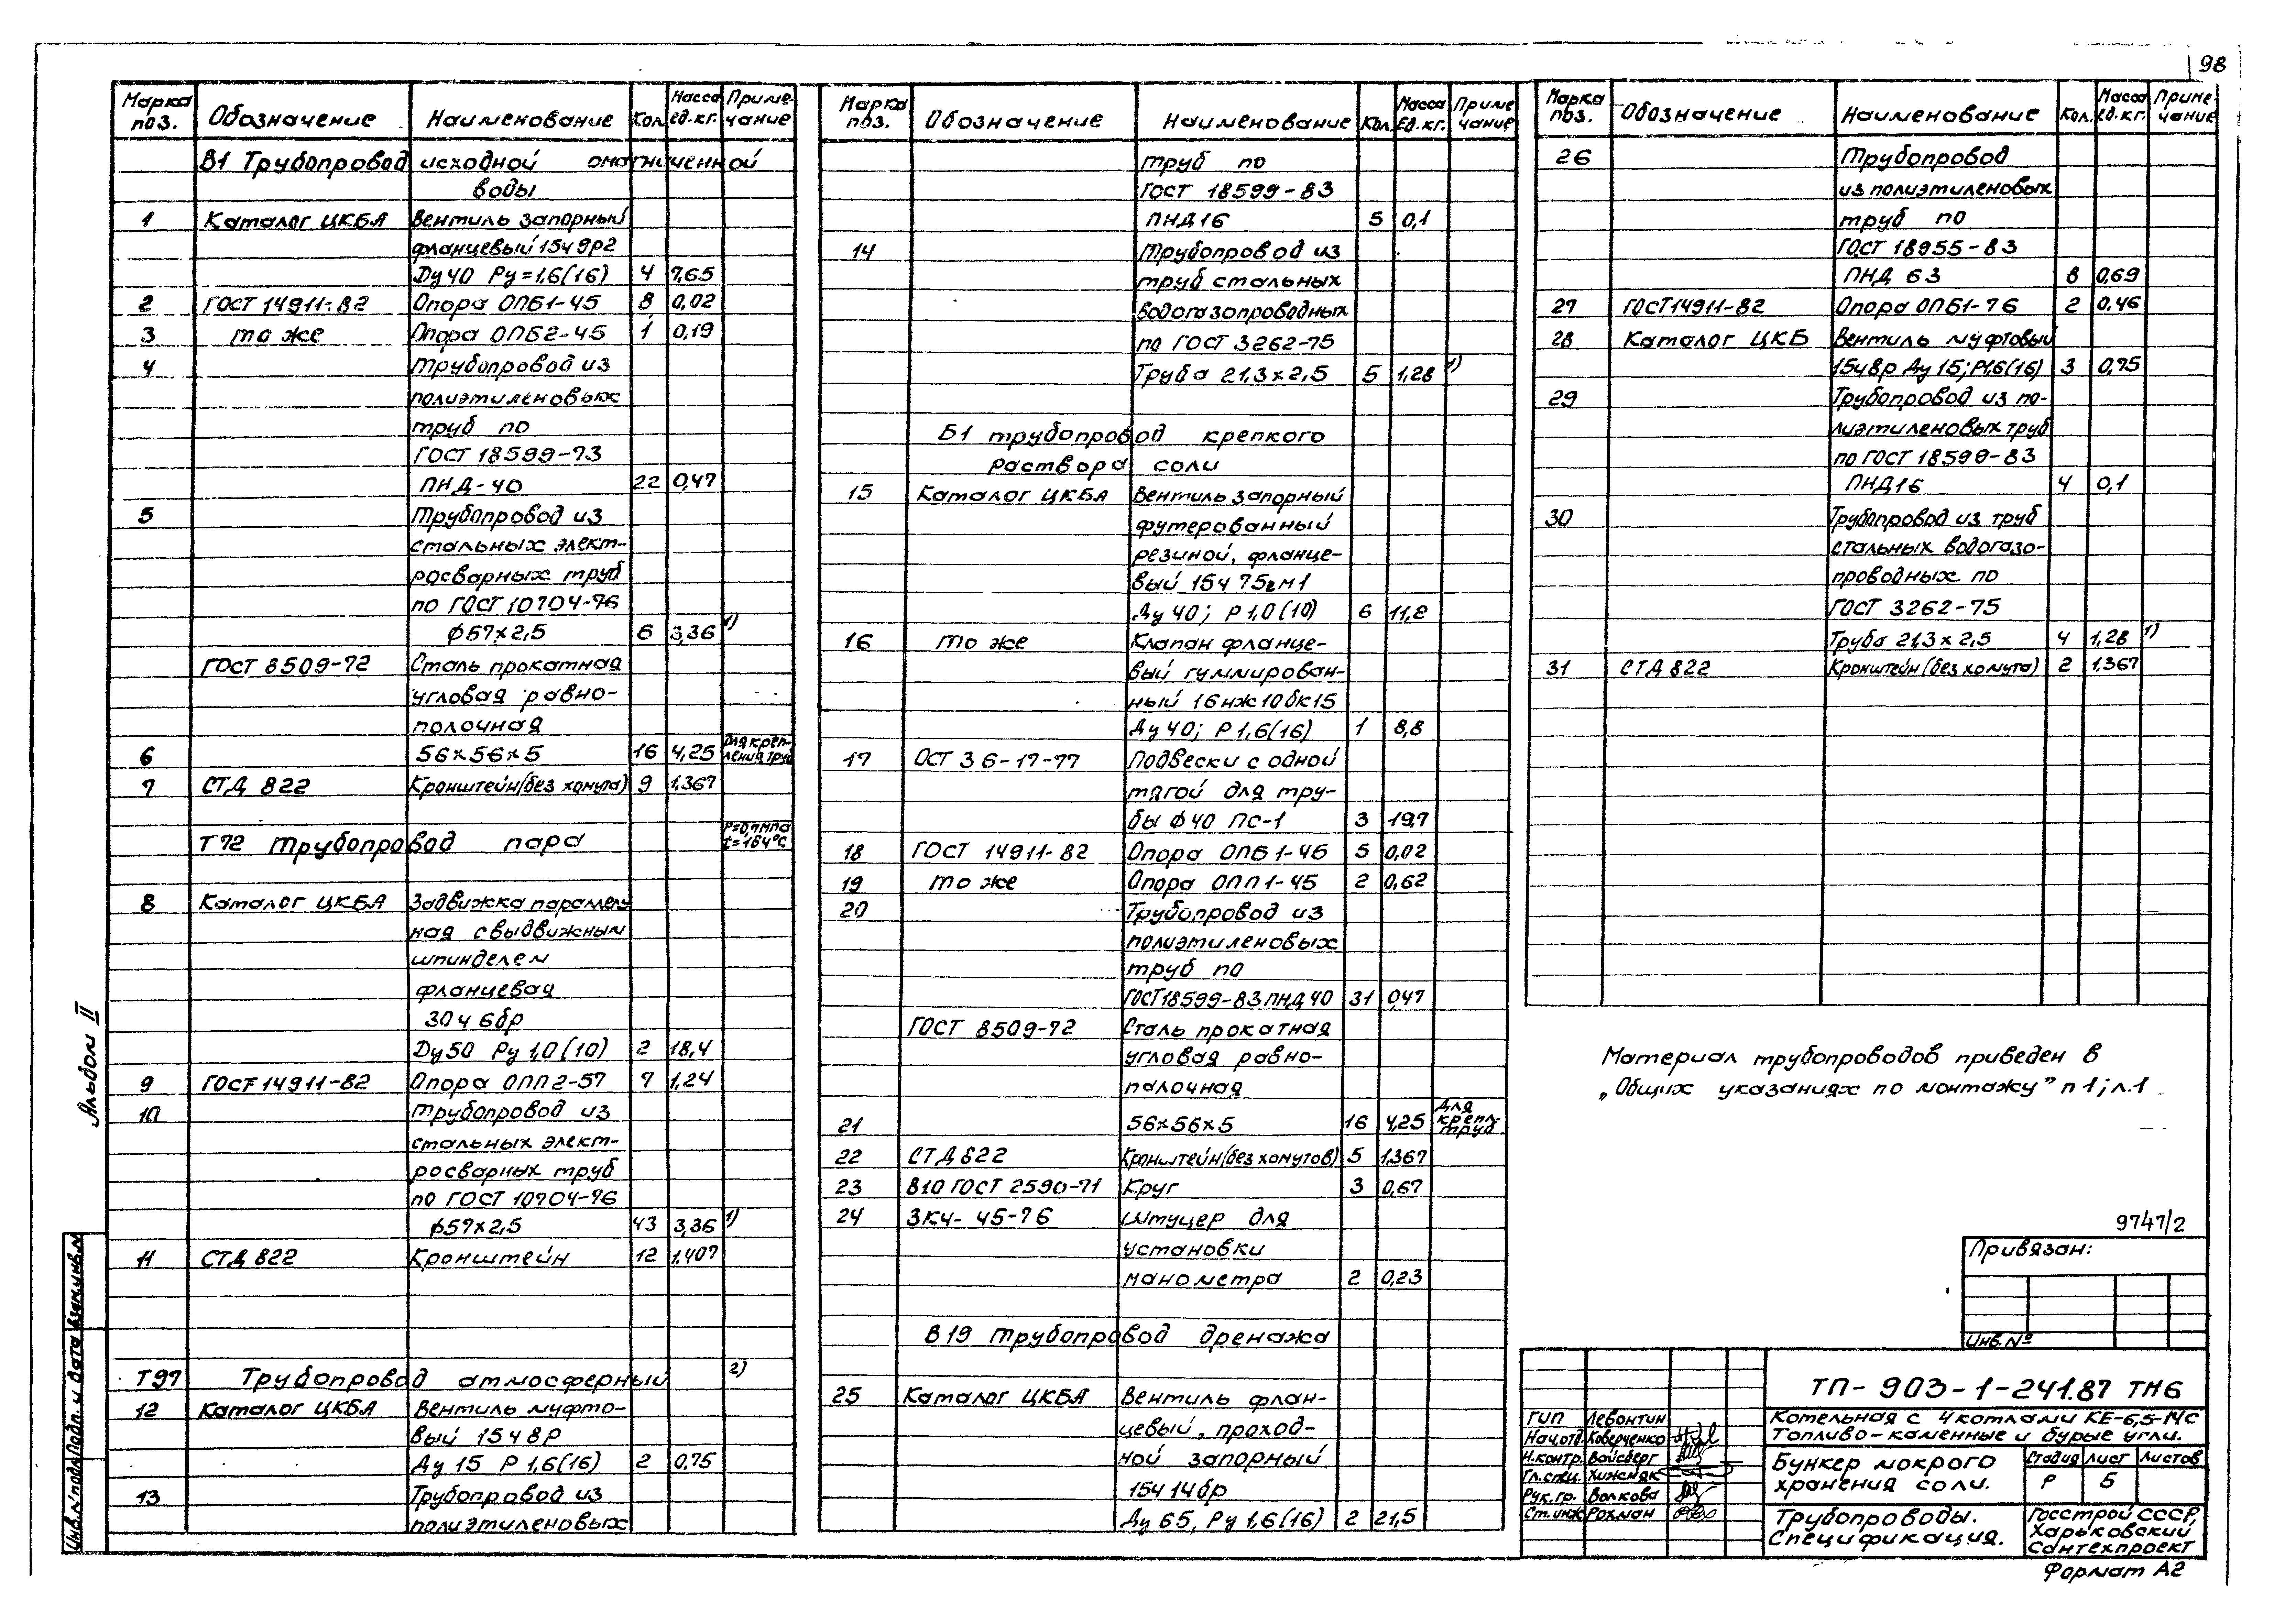 98
Марка поз. Обозначение Наименование Кол. Масса ед.кг. Примечание
В1 Трубопровод исходной
воды
1 Каталог ЦКБА Вентиль запорный
фланцевый 15ч9р2
Ду40 Ру=1,6(16) 4 7,65
2 ГОСТ 14911-82 Опора ОПБ1-45 8 0,02
3 то же Опора ОПБ2-45 1 0,19
4 Трубопровод из
полиэтиленовых
труб по
ГОСТ 18599-73
ПНД-40 22 0,47
5 Трубопровод из
стальных элект-
росварных труб
по ГОСТ 10704-76
ф57х2,5 6 3,36 1)
ГОСТ 8509-72 Сталь прокатная
угловая равно-
полочная
6 56х56х5 16 4,25 для креп-
ления труб
7 СТД 822 Кронштейн(без хомута) 9 1,367
Т72 Трубопровод пара Р=0,7МПа
t=164°С
8 Каталог ЦКБА Задвижка параллель
ная с выдвижным
шпинделем
фланцевая
30ч6бр
Ду50 Ру 1,0(10) 2 18,4
9 ГОСТ 14911-82 Опора ОПП2-57 7 1,24
10 Трубопровод из
стальных элект-
росварных труб
по ГОСТ 10704-76
ф57х2,5 43 3,36 1)
11 СТД 822 Кронштейн 12 1,407
Т97 Трубопровод атмосферный 2)
12 Каталог ЦКБА Вентиль муфто-
вый 15ч8Р
Ду 15 Р 1,6(16) 2 0,75
13 Трубопровод из
полиэтиленовых
Марка поз. Обозначение Наименование Кол. Масса ед.кг. Примечание
труб по
ГОСТ 18599-83
ПНД16 5 0,1
14 Трубопровод из
труб стальных
водогазопроводных
по ГОСТ 3262-75
Труба 21,3х2,5 5 1,28 1)
Б1 трубопровод крепкого
раствора соли
15 Каталог ЦКБА Вентиль запорный
футерованный
резиной, фланце-
вый 15ч75гм1
Ду 40; Р 1,0(10) 6 11,2
16 то же Клапан фланце-
вый гуммирован-
ный 16нж10бк15
Ду 40; Р 1,6(16) 1 8,8
17 ОСТ 36-17-77 Подвески с одной
тягой для тру-
бы ф40 ПС-1 3 19,7
18 ГОСТ 14911-82 Опора ОПБ1-46 5 0,02
19 то же Опора ОПП1-45 2 0,62
20 Трубопровод из
полиэтиленовых
труб по
ГОСТ18599-83ПНД40 31 0,47
ГОСТ 8509-72 Сталь прокатная
угловая равно-
палочная
21 56х56х5 16 4,25 для
крепл.
труб
22 СТД822 Кронштейн(без хомутов) 5 1,367
23 В10 ГОСТ 2590-71 Круг 3 0,67
24 ЗКЧ-45-76 Штуцер для
установки
манометра 2 0,23
В19 трубопровод дренажа
25 Каталог ЦКБА Вентиль флан-
цевый, проход-
ной запорный
15ч14бр
Ду 65, Ру 1,6(16) 2 21,5
Марка поз. Обозначение Наименование Кол. Масса ед.кг. Примечание
26 Трубопровод
из полиэтиленовых
труб по
ГОСТ 18955-83
ПНД 63 8 0,69
27 ГОСТ14911-82 Опора ОПБ1-76 2 0,46
28 Каталог ЦКБ Вентиль муфтовый
15ч8р Ду 15; Р1,6(16) 3 0,75
29 Трубопровод из по-
лиэтиленовых труб
по ГОСТ 18599-83
ПНД16 4 0,1
30 Трубопровод из труб
стальных водогазо-
проводных по
ГОСТ 3262-75
Труба 21,3х2,5 4 1,28 1)
31 СТД822 Кронштейн(без хомута) 2 1,367
Материал трубопроводов приведен в
„Общих указаниях по монтажу" п1; л.1
9747/2
Привязан:
Инв.№
ТП-903-1-241.87 ТМ6
Котельная с 4 котлами КЕ-6,5-14с
Топливо-каменные и бурые угли.
Бункер мокрого
хранения соли.
Стадия Лист Листов
Р 5
Трубопроводы.
Спецификация.
Госстрой СССР,
Харьковский
Сантехпроект
ГИП Левонтин
Нач.отд. Коверченко
Н.контр. Вайсберг
Гл.спец. Хижняк
Рук.гр. Волкова
Ст.инж. Рохман
Формат А2
Альбом II
Инв.№подл. Подп. и дата Взам.инв.№